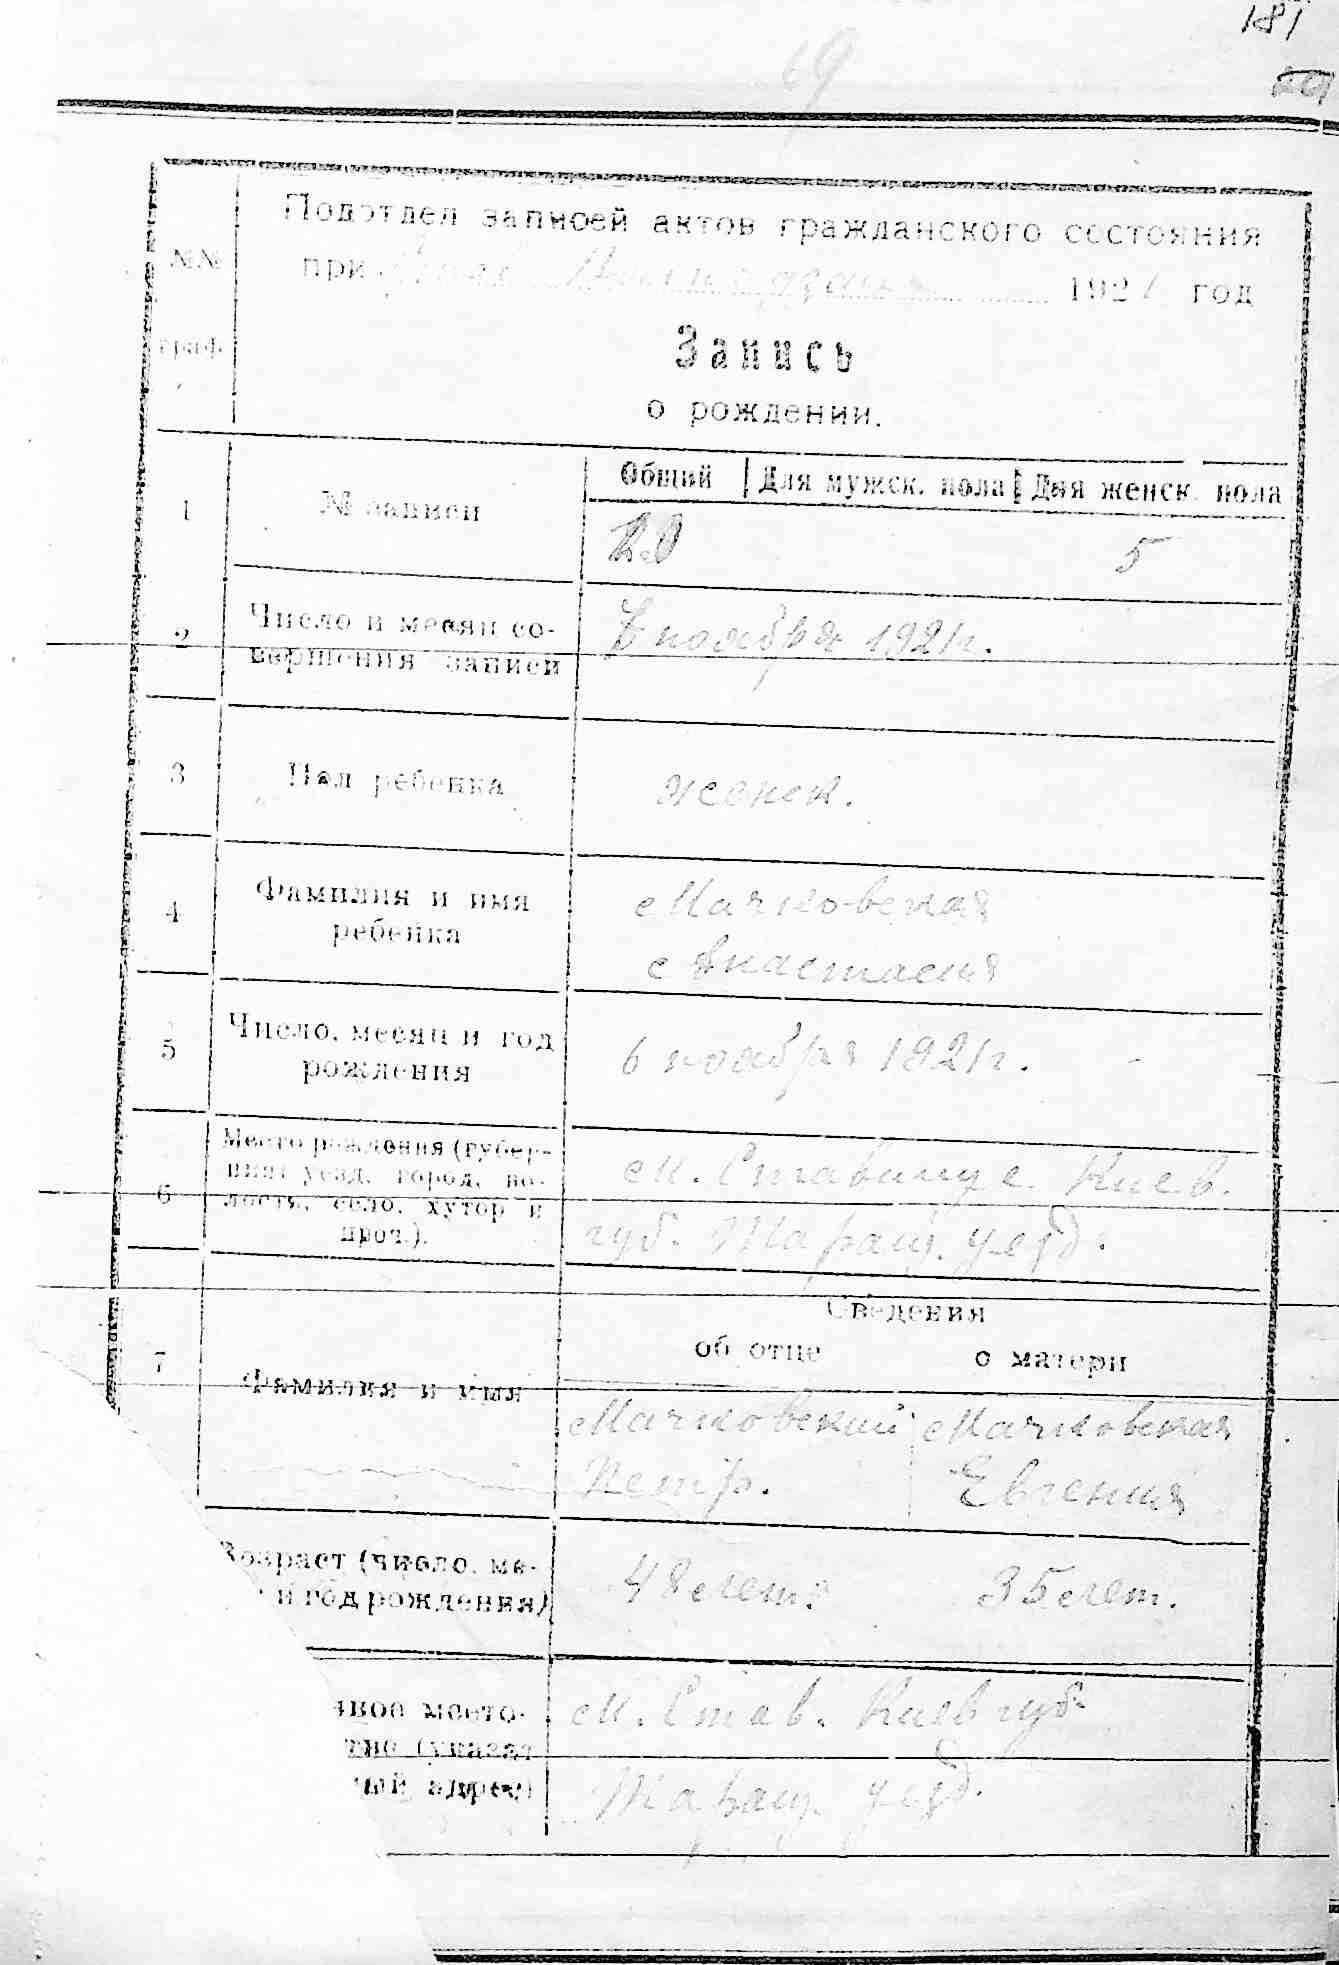 181
69
Подотдел записей актов гражданского состояния
№№
при 1921 год
граф
Запись
о рождении.
Общий Для мужск. пола Для женск. пола
1 № записи
20 5
2 Число и месяц со-
вершения записи
ноября 1921 г.
3 Пол ребенка женск.
4 Фамилия и имя
ребенка
Мачковская
Анастасия
5 Число, месяц и год
рождения
6 ноября 1921 г.
6 Место рождения (губер-
ния, уезд, город, во-
лость, село, хутор и
проч.).
м. Ставище Киев.
губ. Таращ. уезд.
Сведения
об отце о матери
7 Фамилия и имя
Мачковский Мачковская
Петр. Евгения
Возраст (число, ме-
и год рождения)
48 лет. 35 лет.
нное место-
тво (указат
ный адрес)
м. Став. Киев губ.
Таращ. уезд.